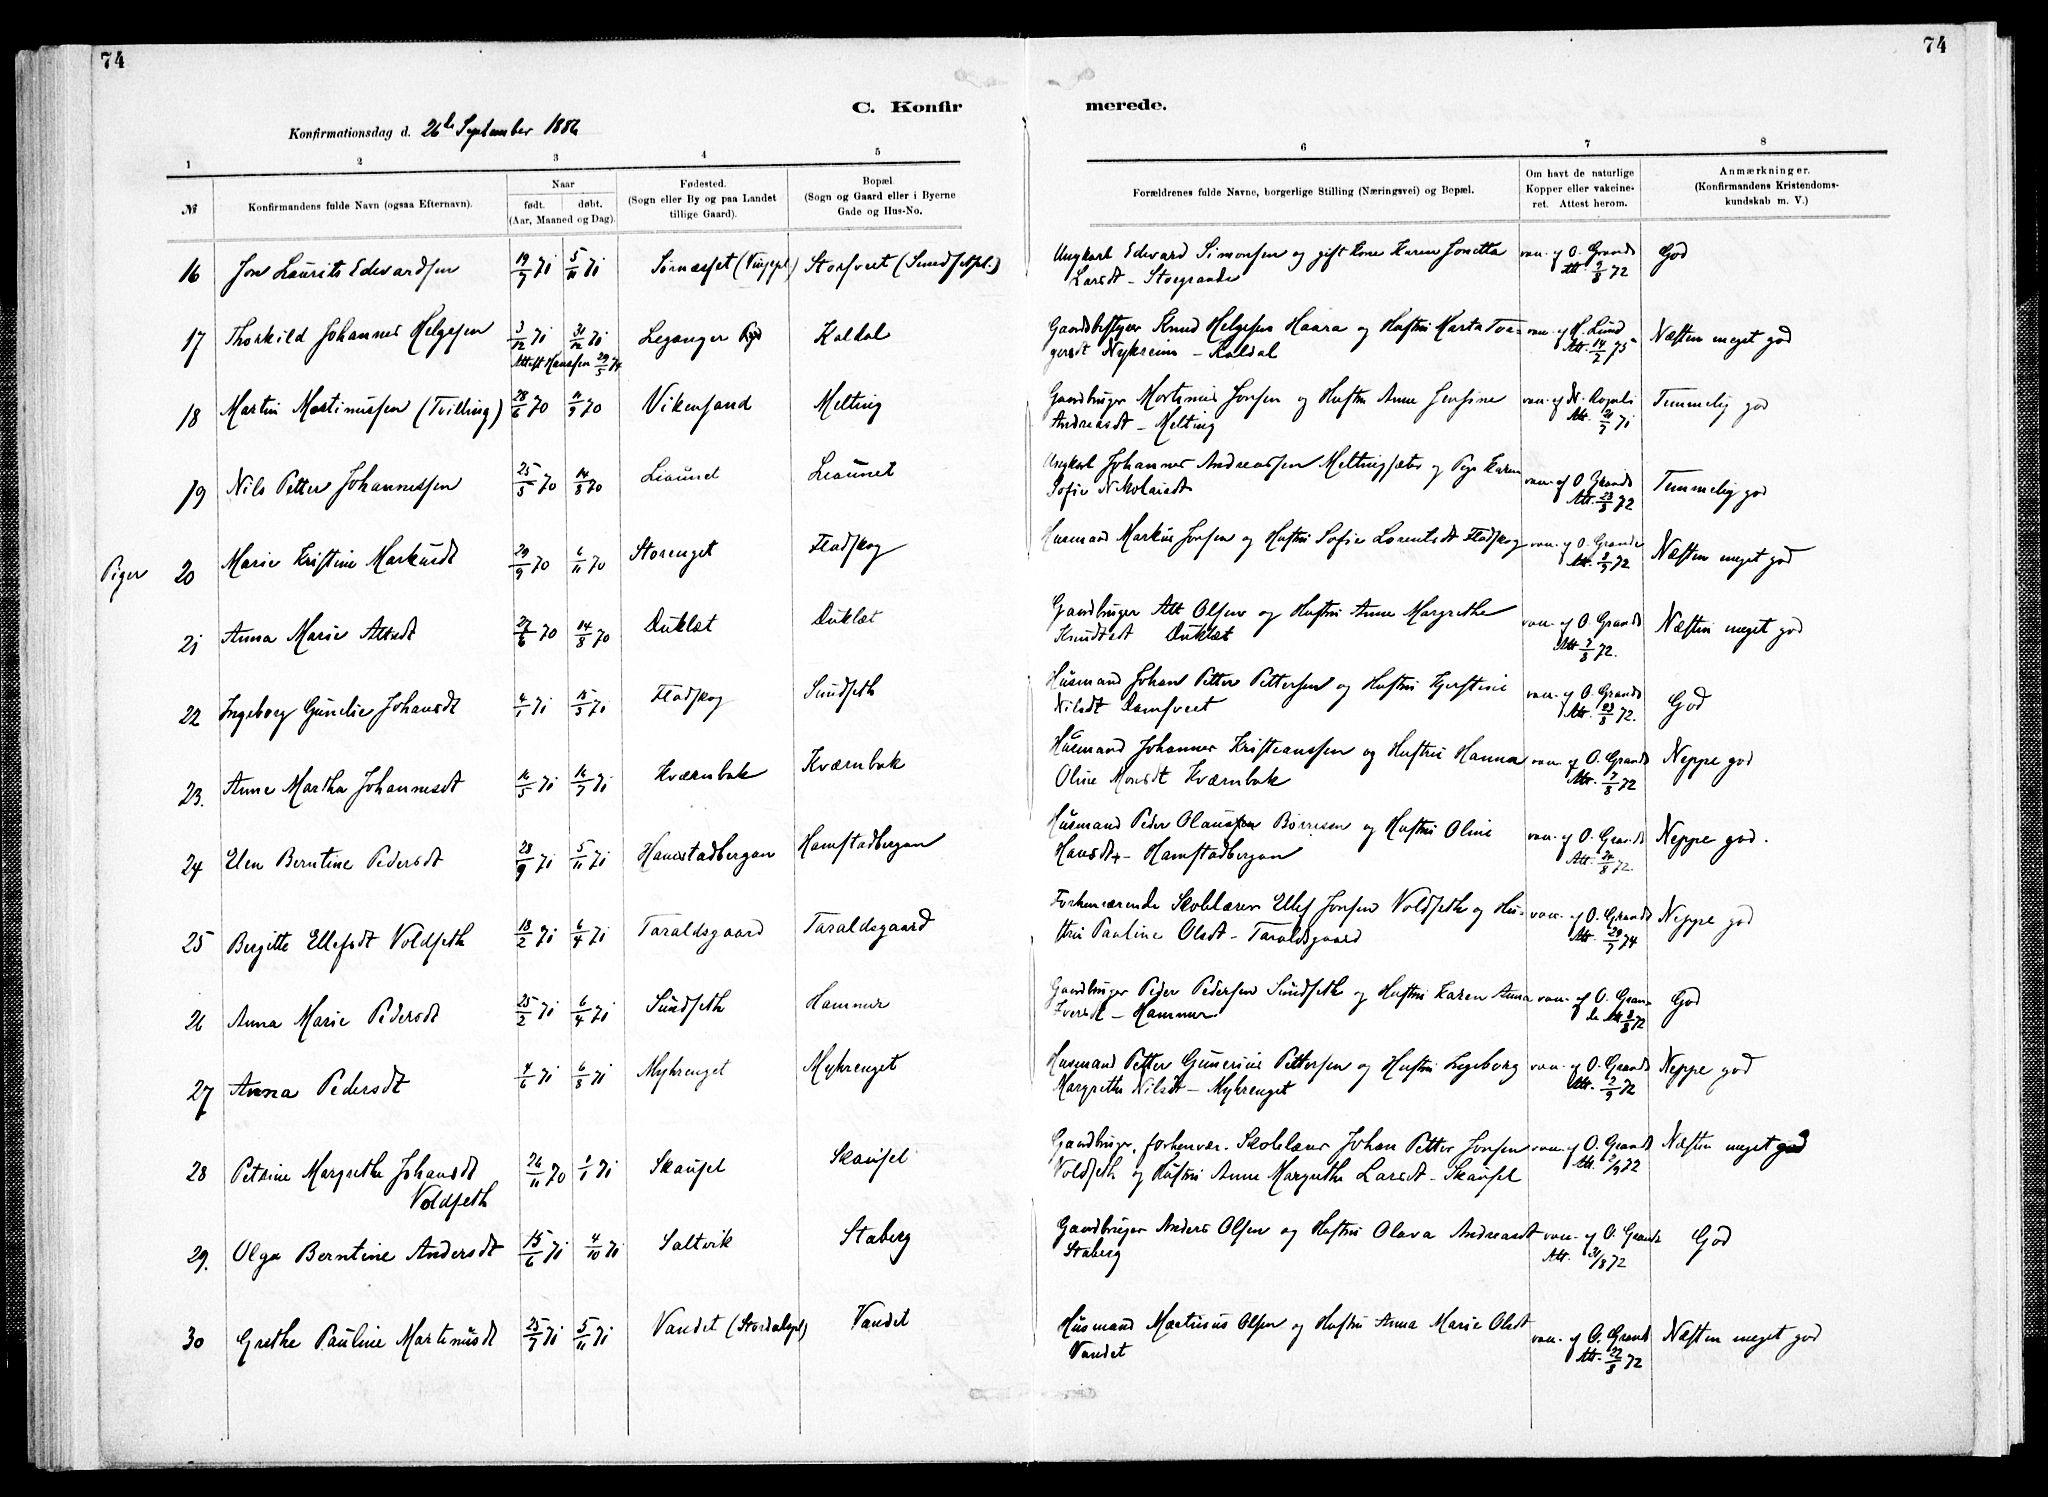 74
74
C. Konfir
merede.
Konfirmationsdag d. 26de September 1886
1 2 3 4 5 6 7 8
№
Konfirmandens fulde Navn (ogsaa Efternavn).
Naar
født. døbt.
(Aar, Maaned og Dag).
Fødested.
(Sogn eller By og paa Landet
tillige Gaard).
Bopæl.
(Sogn og Gaard eller i Byerne
Gade og Hus-No.
Forældrenes fulde Navne, borgerlige Stilling (Næringsvei) og Bopæl.
Om havt de naturlige
Kopper eller vakcine-
ret. Attest herom.
Anmærkninger.
(Konfirmandens Kristendoms-
kundskab m. V.)
16 Jon Laurits Edvardsen 19/7 71 5/11 71 Storfveet (Sundsetpl.) Ungkarl Edvard Simonsen og gift Kone Karen Jonetta vac. af O. Grande God
Larsdt - Storgrande Att. 9/8 72
17 Thorkild Johannes Helgesen 3/12 71 31/12 71 Leganger Kaldal Gaardbestyrer Knud Helgesen Haara og Hustru Marta vac. af H. Lund Næsten meget god
Attest Hanssen 29/5 74 - Kaldal Att. 14/7 75
18 Martin Martinussen (Tvilling) 28/6 70 11/9 70 Vikensand Melting Gaardbruger Martinus Jonsen og Hustru Anne Jensine Temmelig god
Andreasdt - Melting Att. 21/7 71
19 Nils Petter Johannessen 25/5 70 14/8 70 Liaunet Liaunet Ungkarl Johannes Andreassen Meltingsæter og Pige Karen vac. af O Grande Temmelig god
Sofie Nikolaisdt Att. 23/8 72
Piger 20 Marie Kristine Markusdt 29/9 70 6/11 70 Storenget Fladskog Husmand Markus Jonsen og Hustru Sofie Lorentsdt Fladskog vac. af O. Grande Næsten meget god
Att. 2/9 72
21 Anna Marie Altsdt 27/6 70 14/8 70 Duklæt Duklæt Gaardbruger Alt Olsen og Hustru Anne Margrethe vac. af O Grande Næsten meget god
Knudsdt Duklæt Att 2/8 72.
22 Ingeborg Gunelie Johansdt 4/1 71 15/3 71 Fladskog Sundseth Husmand Johan Petter Pettersen og Hustru Kjerstine vac. af O. Grande God
Nilsdt Damfveet Att. 23/8 72.
23. Anne Martha Johannesdt 16/5 71 16/7 71 Kværnbak Kværnbak Husmand Johannes Kristianssen og Hustru Hanna vac. af O. Grande Neppe god
Oline Monsdt Kværnbak Att. 7/8 72
24 Elen Berntine Pedersdt 28/9 71 5/11 71 Hamstadbergan Hamstadbergan Husmand Peder Olaussen Børresen og Hustru Oline vac. af O. Grande Neppe god.
Hansdt - Hamstadbergan Att. 24/8 72.
25 Bergitte Ellefsdt Voldseth 18/2 71 6/4 71 Taraldsgaard Taraldsgaard Forhenværende Skolelærer Ellef Jonsen Voldseth og Hu- vac. af O. Grande Neppe god
stru Pauline Olsdt - Taraldsgaard Att. 29/7 74
26 Anna Marie Pedersdt 25/2 71 6/4 71 Sundseth Hammer Gaardbruger Peder Pedersen Sundseth og Hustru Karen Anna vac. af O. Gran- God
Iversdt - Hammer de Att 2/8 72
27 Anna Pedersdt 4/6 71 6/8 71 Myhrenget Myhrenget Husmand Petter Gunerius Pettersen og Hustru Ingeborg vac. af O. Grande Neppe god
Margrethe Nilsdt - Myhrenget Att. 2/9 72
28 Petrine Margrethe Johansdt 26/11 70 1/1 71 Skaufel Skaufel Gaardbruger, forhenvær. Skolelærer Johan Petter Jonsen vac. af O. Grande Næsten meget god
Voldseth Voldseth og Hustru Anne Margrethe Larsdt - Skaufel Att. 2/9 72
29. Olga Berntine Andersdt 15/6 71 4/10 71 Saltvik Staberg Gaardbruger Anders Olsen og Hustru Olava Andreasdt vac. af O. Grande God
Staberg Att. 31/8 72
30 Grethe Pauline Martinusdt 25/7 71 5/11 71 Vandet (Stordalspl) Vandet Husmand Martinus Olsen og Hustru Anna Marie Olsdt vac. af O. Grande Næsten meget god
Vandet Att. 22/8 72